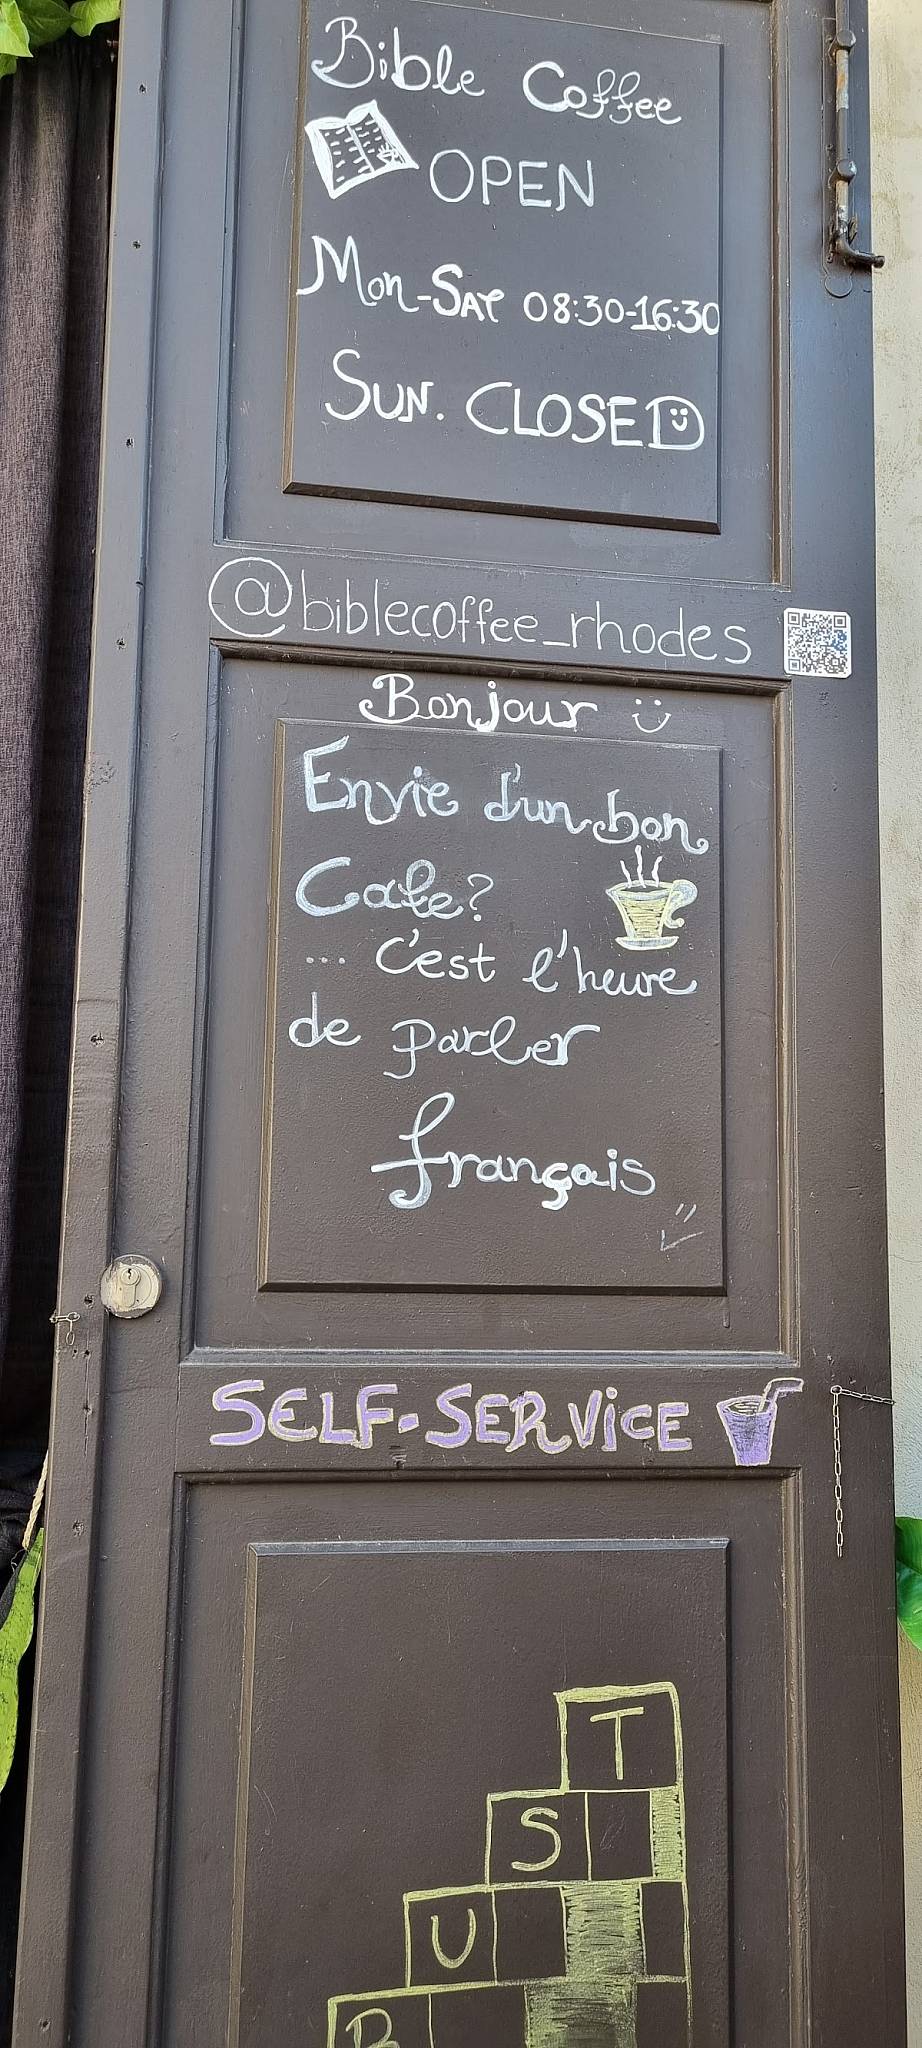 Bible Coffee
OPEN
Mon-SAT 08:30-16:30
SUN. CLOSED
@biblecoffee_rhodes
Bonjour
Envie d'un bon
Cafe?
... c'est l'heure
de parler
français
SELF-SERVICE
T
S
U
R